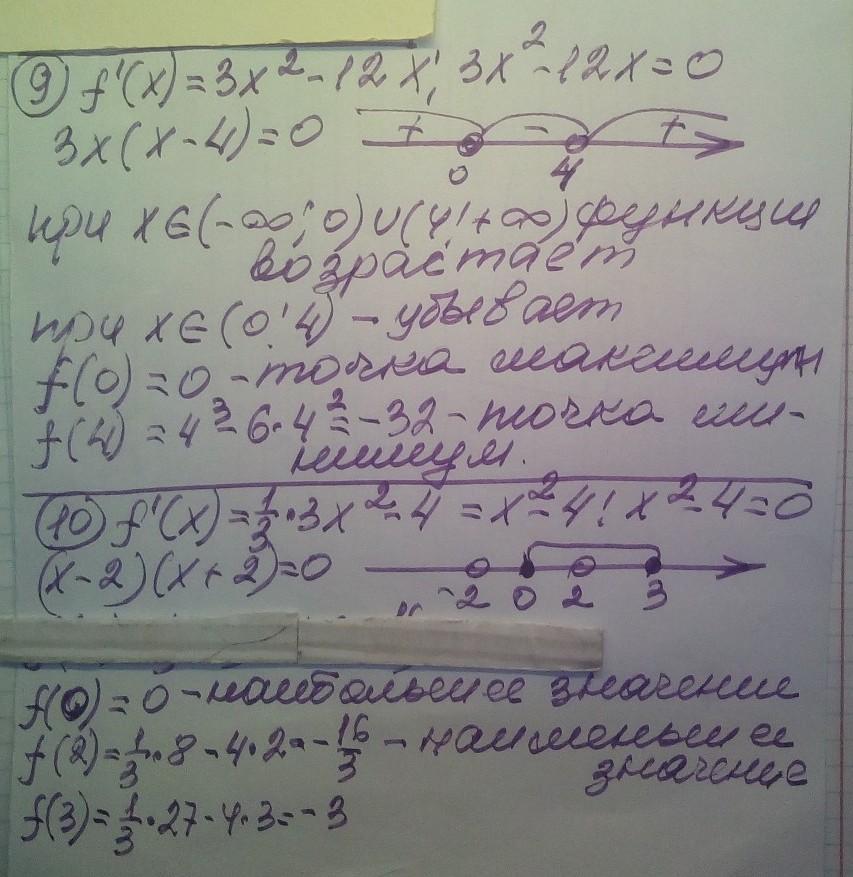 9) f'(x) = 3x² - 12x; 3x² - 12x = 0
3x(x - 4) = 0 + - + 0 4
при x ∈ (-∞; 0) ∪ (4; +∞) функция
возрастает
при x ∈ (0; 4) - убывает
f(0) = 0 - точка максимум
f(4) = 4³ - 6·4² = -32 - точка ми-
нимум.
10) f'(x) = 1/3 · 3x² - 4 = x² - 4; x² - 4 = 0
(x - 2)(x + 2) = 0 -2 0 2 3
f(0) = 0 - наибольшее значение
f(2) = 1/3 · 8 - 4·2 = -16/3 - наименьшее
значение
f(3) = 1/3 · 27 - 4·3 = -3